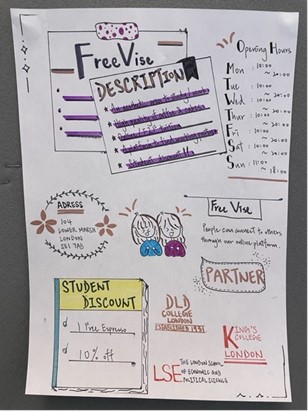 FreeVise
DESCRIPTION
Opening Hours
Mon : 10:00
~ 20:00
Tue : 10:00
~ 20:00
Wed : 10:00
~ 20:00
Thur : 10:00
~ 20:00
Fri : 10:00
~ 20:00
Sat : 10:00
~ 20:00
Sun : 11:00
~ 18:00
ADRESS
104
LOWER MARSH
LONDON
SE1 7AB
Free Vise
People can connect to others
through our online platform.
PARTNER
STUDENT
DISCOUNT
1 Free Espresso
10% off
DLD
COLLEGE
LONDON
ESTABLISHED 1931
KING'S
COLLEGE
LONDON
LSE THE LONDON SCHOOL
OF ECONOMIC AND
POLITICAL SCIENCE